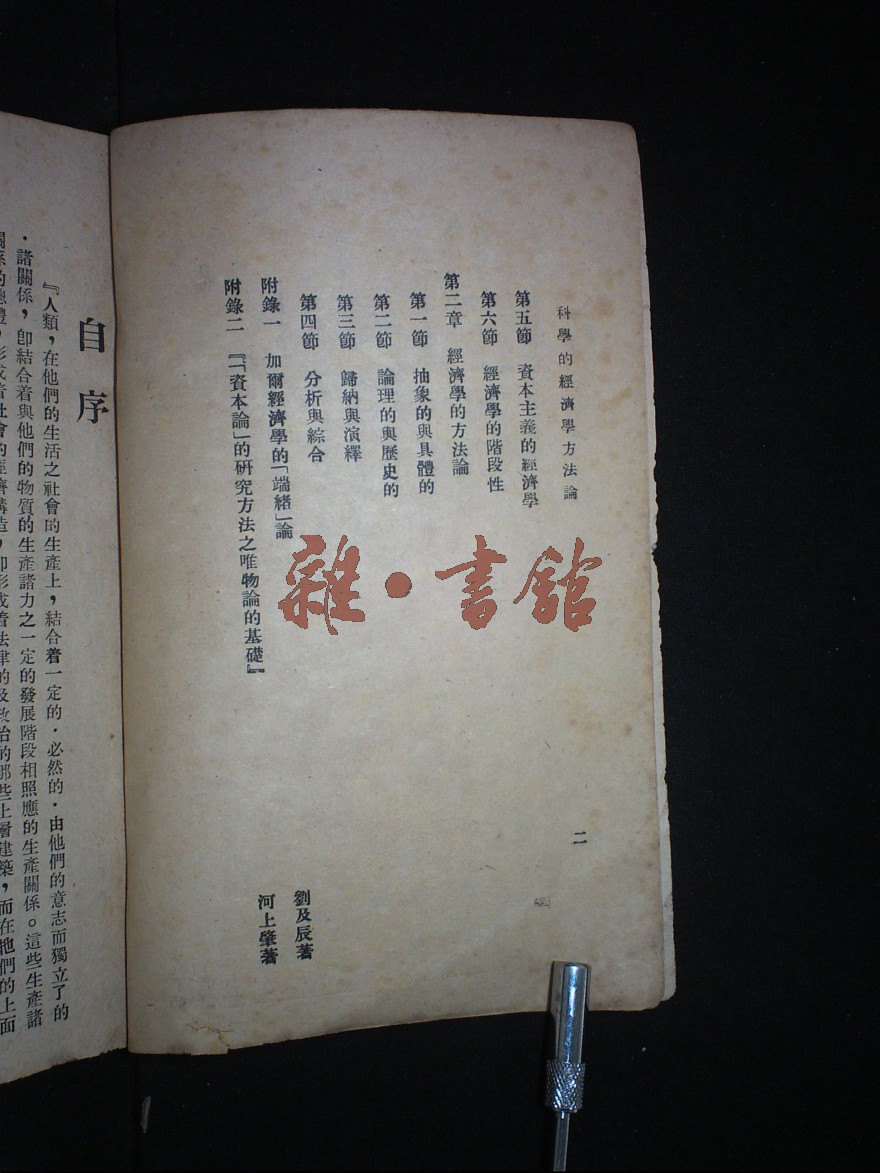 科學的經濟學方法論
二
第五節 資本主義的經濟學
第六節 經濟學的階段性
第二章 經濟學的方法論
第一節 抽象的與具體的
第二節 論理的與歷史的
第三節 歸納與演繹
第四節 分析與綜合
附錄一 加爾經濟學的「端緒」論 劉及辰著
附錄二 『「資本論」的研究方法之唯物論的基礎』 河上肇著
自序
『人類，在他們的生活之社會的生產上，結合着一定的·必然的·由他們的意志而獨立了的
·諸關係，卽結合着與他們的物質的生產諸力之一定的發展階段相照應的生產關係。這些生產諸
關係的總體，形成着社會的經濟構造，卽形成着法律的及政治的那些上層建築，而在牠們的上面
雜·書館